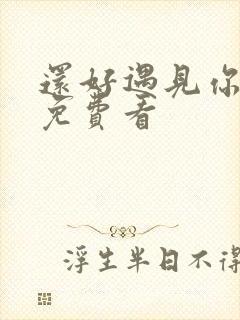 還好遇見你
免費看
浮生半日不得